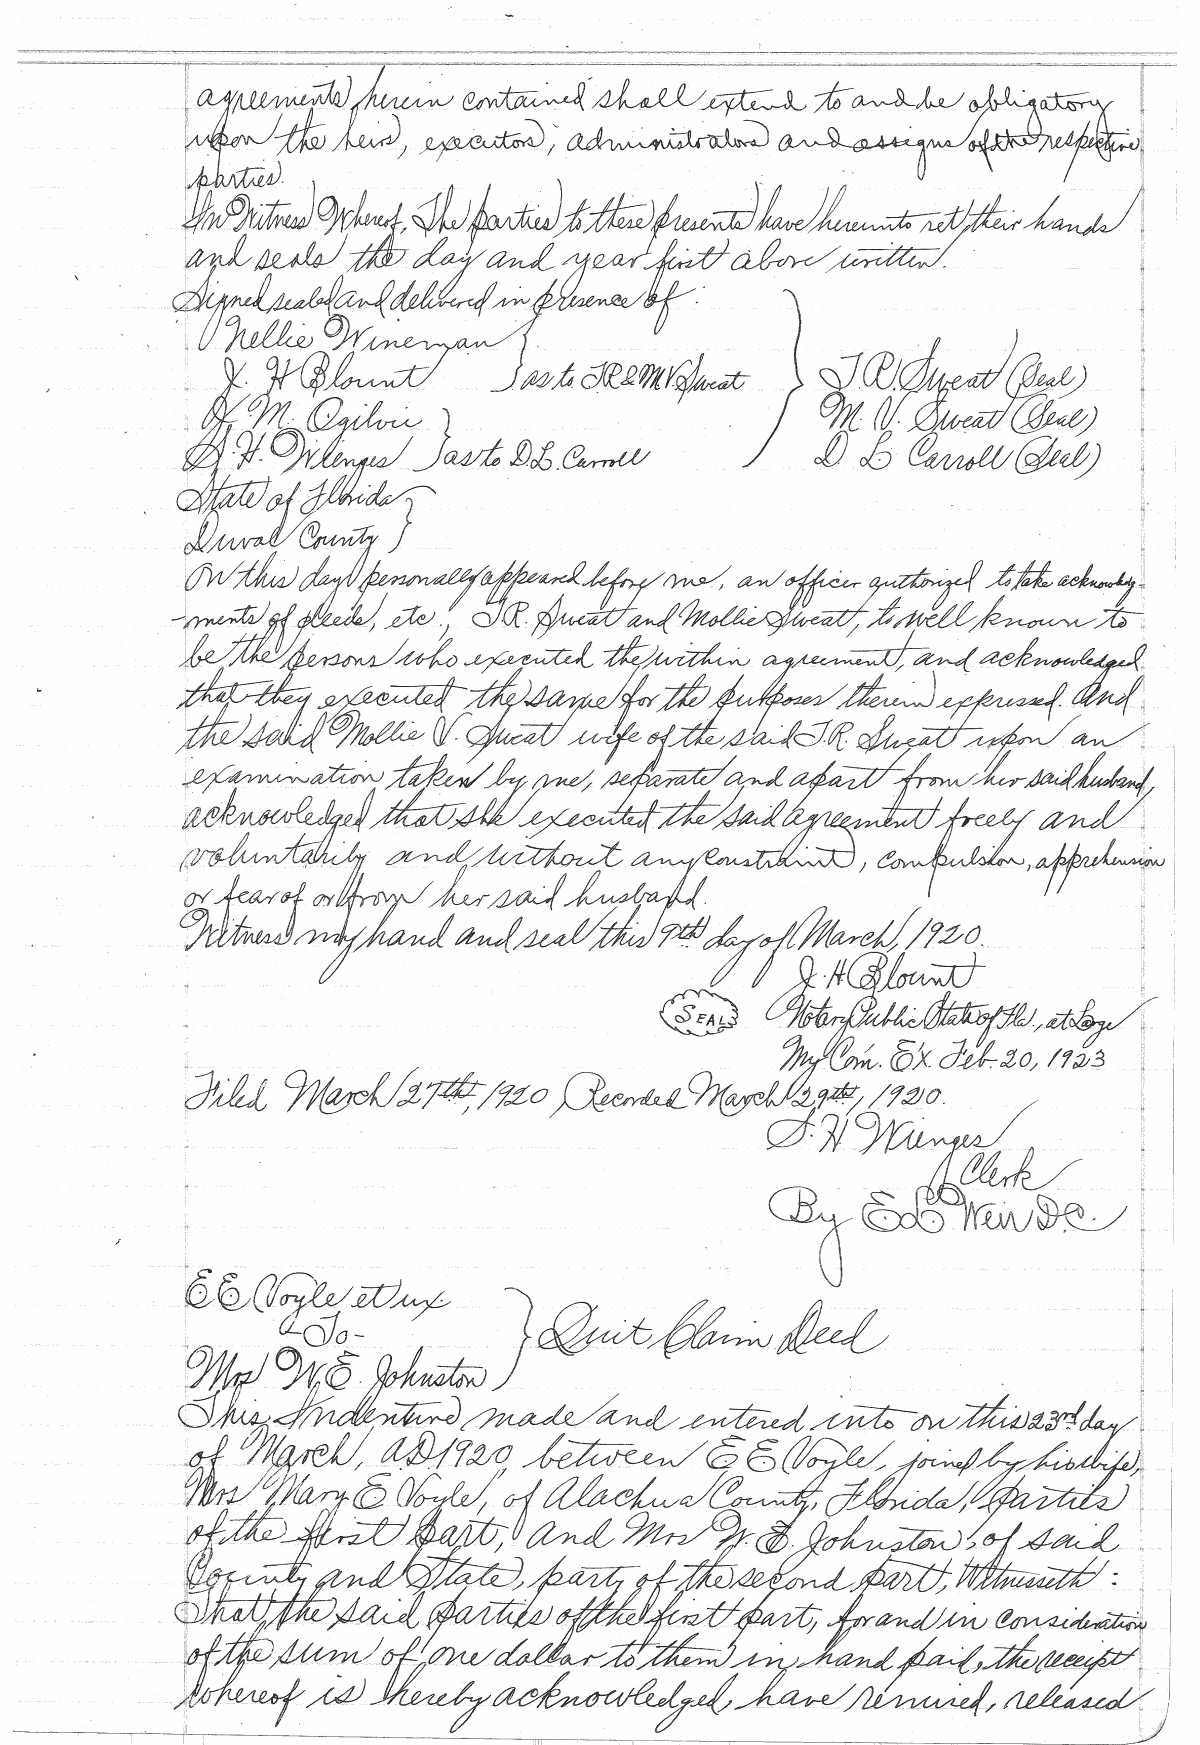 agreements herein contained shall extend to and be obligatory
upon the heirs, executors, administrators and assigns of the respective
parties.
In Witness Whereof, The parties to these presents have hereunto set their hands
and seals the day and year first above written.
Signed sealed and delivered in presence of:
Nellie Wineman
J. H Blount } as to T.R. & M.V. Sweat } T. R. Sweat (Seal)
H. M. Ogilvie M. V. Sweat (Seal)
S. H. Wienges } as to D. L. Carroll D L Carroll (Seal)
State of Florida
Duval County }
On this day personally appeared before me, an officer authorized to take acknowledg-
-ments of deeds, etc., T.R. Sweat and Mollie Sweat, to well known to
be the persons who executed the within agreement, and acknowledged
that they executed the same for the purposes therein expressed. And
the said Mollie V. Sweat wife of the said T.R. Sweat upon an
examination taken by me, separate and apart from her said husband,
acknowledged that she executed the said agreement freely and
voluntarily and without any constraint, compulsion, apprehension
or fear of or from her said husband.
Witness my hand and seal this 9th day of March, 1920.
J. H Blount
SEAL Notary Public State of Fla., at Large
My Com. Ex. Feb. 20, 1923
Filed March 27th, 1920 Recorded March 29th, 1920.
S. H Wienges
Clerk
By E L Weir D.C.
E E Voyle et ux
-To- } Quit Claim Deed
Mrs W. E. Johnston
This Indenture made and entered into on this 23rd day
of March, AD 1920, between E E Voyle, joined by his wife,
Mrs Mary E Voyle, of Alachua County, Florida, parties
of the first part, and Mrs W. E. Johnston, of said
County and State, party of the second part, Witnesseth:
That the said parties of the first part, for and in consideration
of the sum of one dollar to them in hand paid, the receipt
whereof is hereby acknowledged, have remised, released